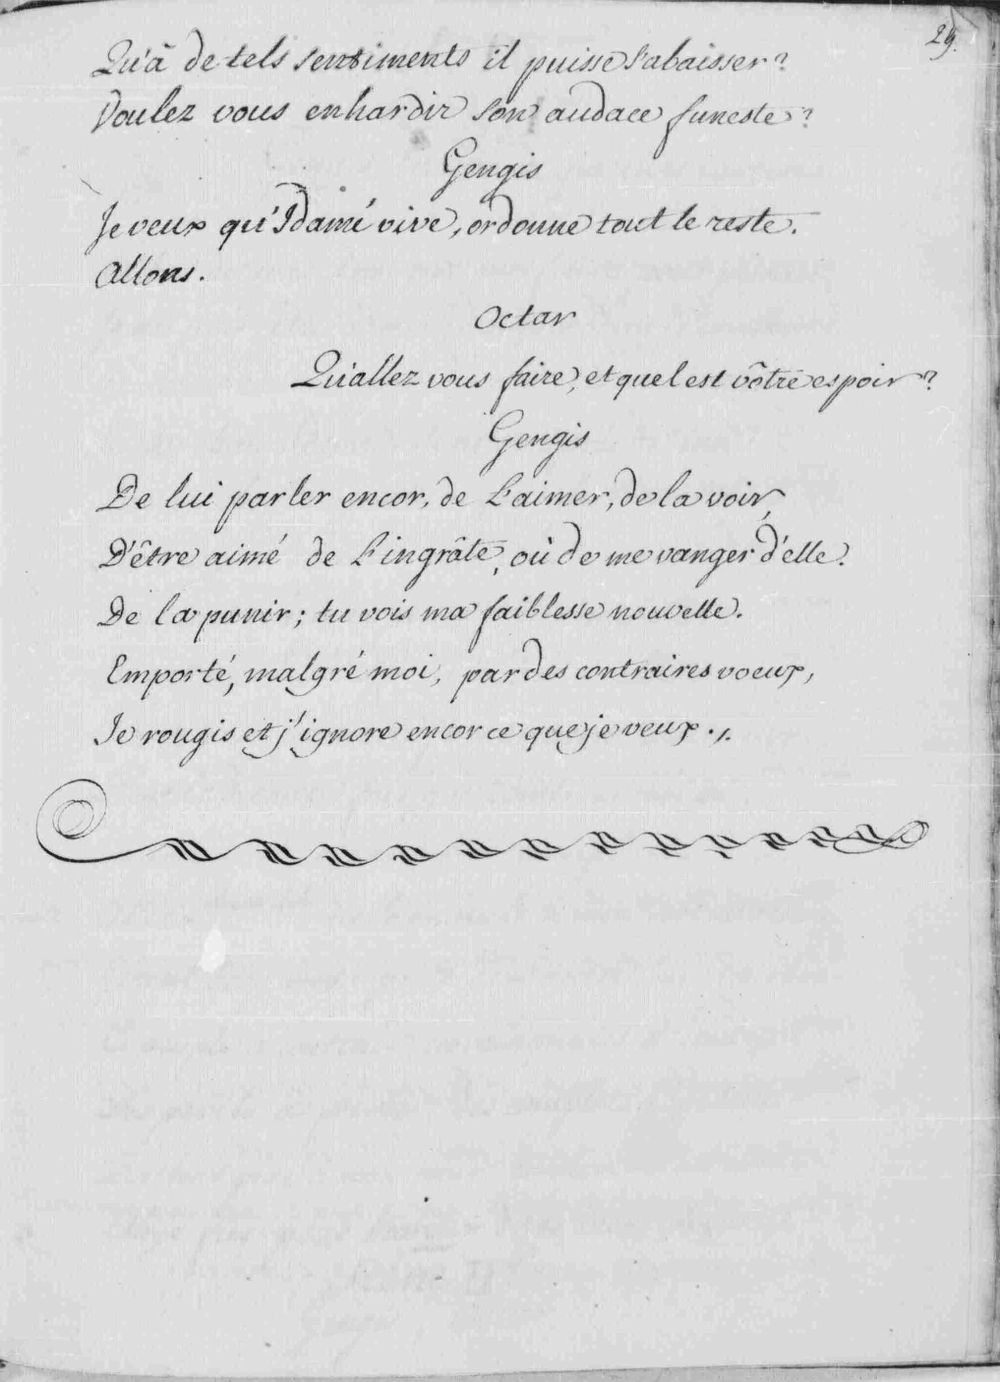 29.
Qu'à de tels sentiments il puisse s'abaisser?
Voulez vous enhardir son audace funeste?
Gengis
Je veux qu'Idamé vive, ordonne tout le reste.
Allons.
Octar
Qu'allez vous faire, et quel est vôtre espoir?
Gengis
De lui parler encor, de l'aimer, de la voir,
D'être aimé de l'ingrâte, où de me vanger d'elle.
De la punir; tu vois ma faiblesse nouvelle.
Emporté, malgré moi, par des contraires voeux,
Je rougis et j'ignore encor ce que je veux.